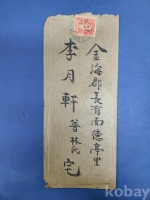 金海郡長有面德亭里
李月軒 普林氏 宅
kobay